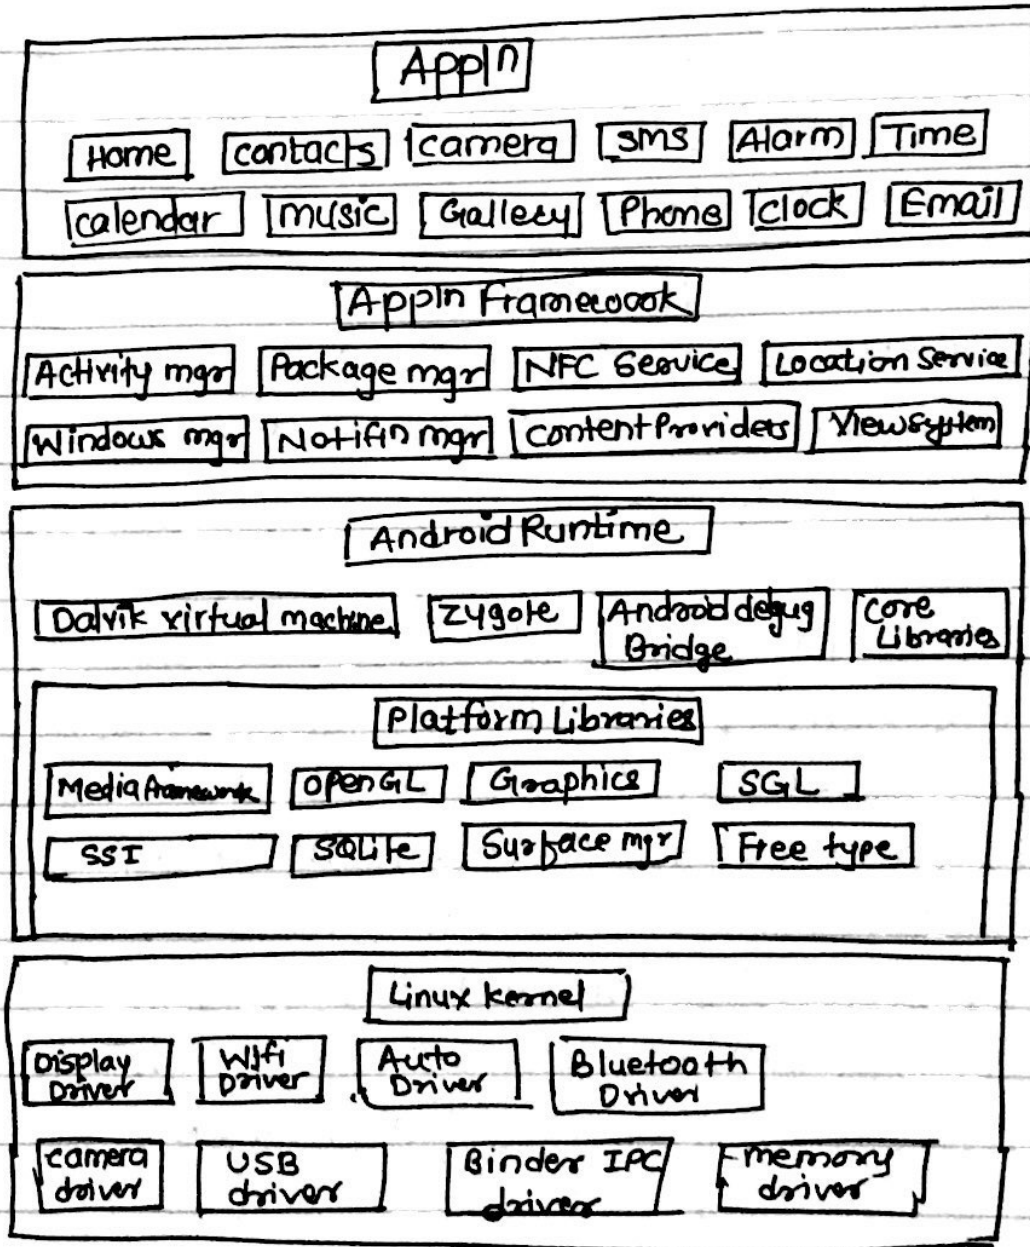 Appln
Home contacts camera SMS Alarm Time
calendar music Gallery Phone clock Email
Appln Framework
Activity mgr Package mgr NFC Service Location Service
Windows mgr Notifin mgr Content Providers View System
Android Runtime
Dalvik virtual machine Zygote Android degug Core
Bridge Libraries
Platform Libraries
Media Framework OpenGL Graphics SGL
SSI SQLite Surface mgr Free type
Linux kernel
Display Wifi Auto Bluetooth
Driver Driver Driver Driver
camera USB Binder IPC memory
driver driver driver driver